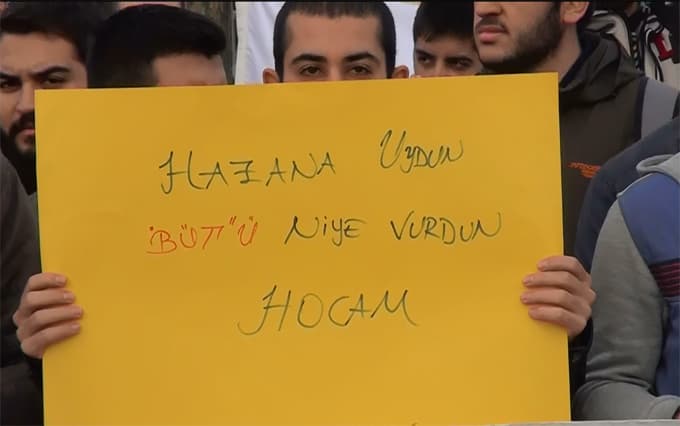 HAZANA UYDUN
"BÜT"Ü NİYE VURDUN
HOCAM